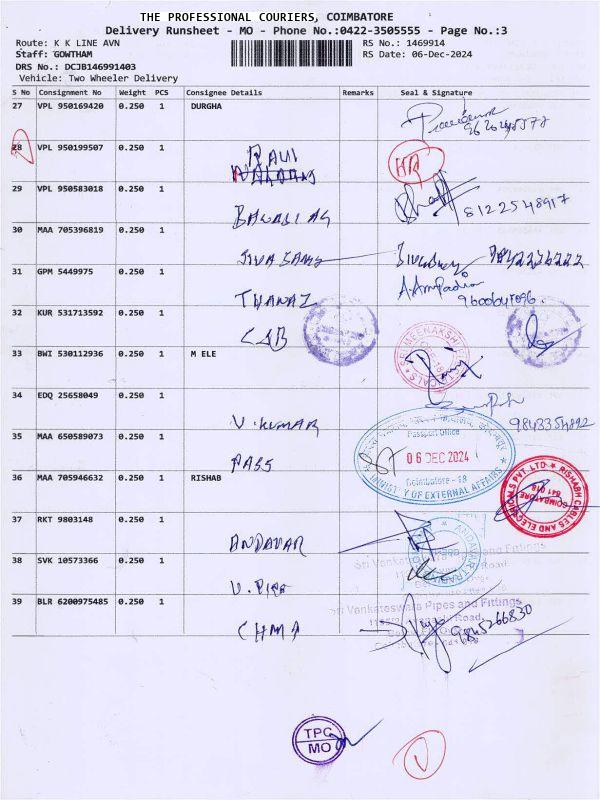 THE PROFESSIONAL COURIERS, COIMBATORE
Delivery Runsheet - MO - Phone No.:0422-3505555 - Page No.:3
Route: K K LINE AVN
RS No.: 1469914
Staff: GOWTHAM
RS Date: 06-Dec-2024
DRS No.: DCJB146991403
Vehicle: Two Wheeler Delivery
S No Consignment No Weight PCS Consignee Details Remarks Seal & Signature
27 VPL 950169420 0.250 1 DURGHA
28 VPL 950199507 0.250 1
RAVI
29 VPL 950583018 0.250 1
8122548917
30 MAA 705396819 0.250 1
31 GPM 5449975 0.250 1
THANAZ
32 KUR 531713592 0.250 1
CAB
33 BWI 530112936 0.250 1 M ELE
34 EDQ 25658049 0.250 1
V.KUMAR
9843354892
35 MAA 650589073 0.250 1
Passport Office
06 DEC 2024
Coimbatore - 18
MINISTRY OF EXTERNAL AFFAIRS
PASS
36 MAA 705946632 0.250 1 RISHAB
RISHABH CABLES AND ELECTRICALS PVT. LTD
COIMBATORE
641 018
37 RKT 9803148 0.250 1
ANDAVAR
38 SVK 10573366 0.250 1
V.PIPE
39 BLR 6200975485 0.250 1
Sri Venkateswara Pipes and Fittings
CHMA
9845266830
TPC
MO